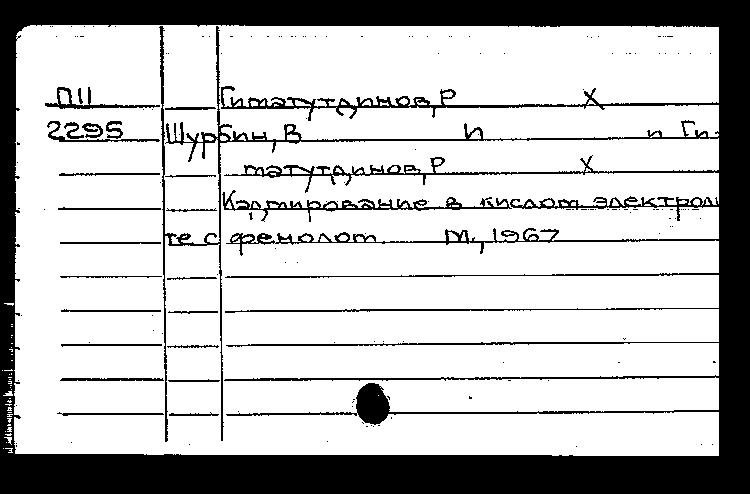 П11 Гиматутдинов, Р Х
2295 Шурбин, В И и Ги-
матутдинов, Р Х
Кадмирование в кислом электроли
те с фенолом. М., 1967